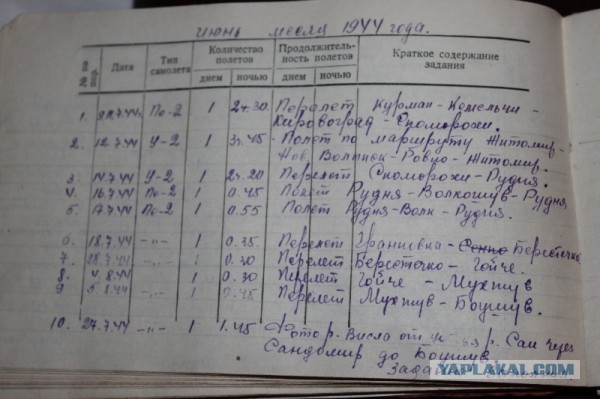 июнь месяц 1944 года.
№ по пор. Дата Тип самолета Количество полетов днем ночью Продолжитель- ность полетов днем ночью Краткое содержание задания
1. 7.44 По-2 1 2ч.30. Перелет Курман-Кемельчи-
Кировоград - Скоморохи.
2. 12.7.44 У-2 1 3ч.45 - Полет по маршруту Житомир-
Нов. Волынск-Ровно-Житомир.
3. 14.7.44 У-2 1 2ч.20 Перелет Скоморохи-Рудня.
4. 16.7.44 По-2 1 0.45 Полет Рудня-Волкошув-Рудня,
5. 17.7.44 По-2 1 0.55 Полет Рудня-Волк-Рудня.
6. 18.7.44 -„- 1 0.35 Перелет Грановка- Берсточко
7. 28.7.44 -„- 1 0.30 Перелет Берсточко - Гойче.
8. 4.8.44 1 0.30 Перелет Гойче - Мухнув
9 5.8.44 -„- 1 0.45 Перелет Мухнув - Боушув.
10. 27.7.44 -„- 1 1.45 Фото р. Висла от р. Сан через
Сандомир до Боушув
Зада
YAPLAKAL.COM